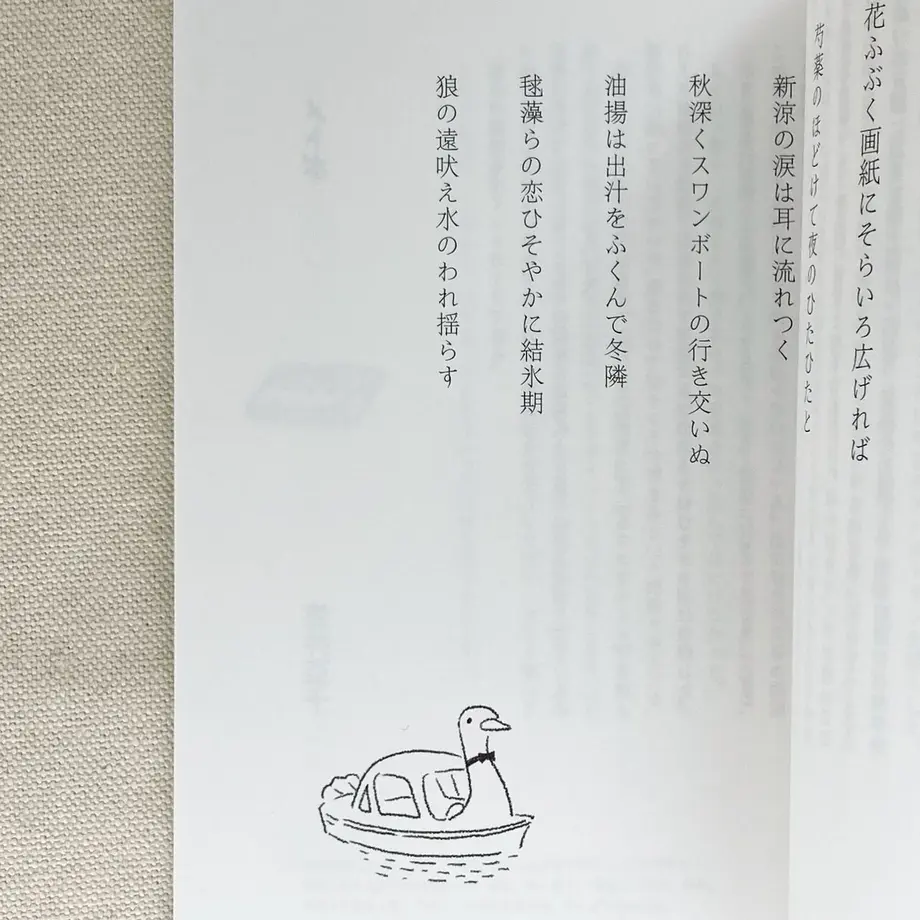 花ふぶく画紙にそらいろ広げれば
芍薬のほどけて夜のひたひたと
新涼の涙は耳に流れつく
秋深くスワンボートの行き交いぬ
油揚は出汁をふくんで冬隣
毬藻らの恋ひそやかに結氷期
狼の遠吠え水のわれ揺らす